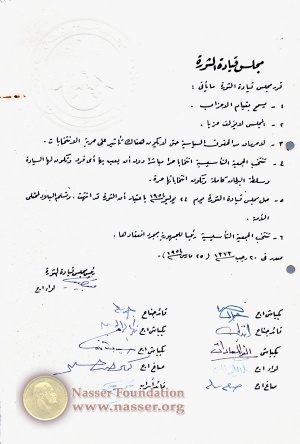 مجلس قيادة الثورة
قرر مجلس قيادة الثورة ما يأتى :
١ - يسمح بقيام الأحزاب .
٢ - المجلس لا يؤلف حزبا .
٣ - لا حرمان من الحقوق السياسية حتى لا يكون هناك تأثير على حرية الانتخابات .
٤ - تنتخب الجمعية التأسيسية انتخابا حرا مباشرا دون أن يعين بها أى فرد وتكون لها السيادة
وسلطة البرلمان كاملة وتكون انتخاباتها حرة .
٥ - حل مجلس قيادة الثورة يوم ٢٤ يوليو ١٩٥٤ باعتبار أن الثورة قد انتهت وتسلم البلاد لممثلى
الأمة .
٦ - تنتخب الجمعية التأسيسية رئيسا للجمهورية بمجرد انعقادها .
صدر فى ٢٠ رجب ١٣٧٣ (٢٥ مارس ١٩٥٤)
رئيس مجلس قيادة الثورة
لواء أ ح
بكباشى أ ح
قائد جناح
قائد جناح
بكباشى أ ح
بكباشى
أنور السادات
بكباشى أ ح
صاغ أ ح
صاغ أ ح
Nasser Foundation
www.nasser.org